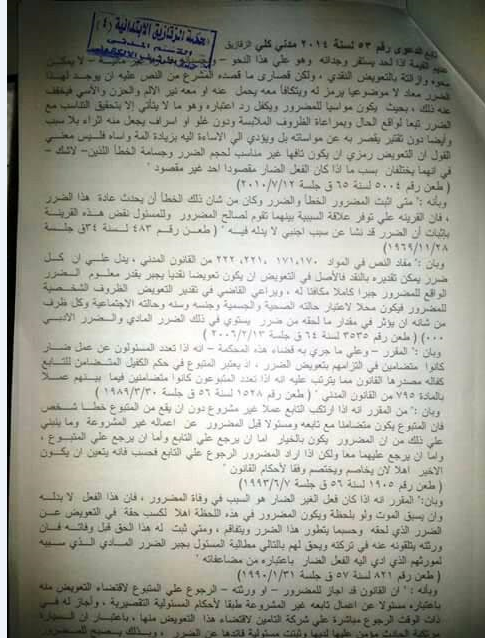 محكمة الزقازيق الابتدائية (٤)
القسم المدنى
تابع الدعوى رقم ٥٣ لسنة ٢٠١٤ مدني كلي الزقازيق
عديم القيمة اذا لحد يستقر وجدانه وهو علي هذا النحو –
محوه وازالتة بالتعويض النقدي ، ولكن قصارى ما قصده المشرع من النص عليه ان يوجد لهذا
الضرر معاد لا موضوعيا يرمز له ويتكافأ معه يحمل عنه او معه نير الالم والحزن والأسي فيخفف
عنه ذلك ، بحيث يكون مواسيا للمضرور ويكفل رد اعتباره وهو ما لا يتأتى إلا بتحقيق التناسب مع
الضرر تبعا لواقع الحال وبمراعاة الظروف الملابسة ودون غلو او اسراف يجعل منه اثراء بلا سبب
وأيضا دون تقتير يقصر به عن مواساته بل ويؤدي الي الاساءة اليه بزيادة المه واساه فليس معني
القول ان التعويض رمزي ان يكون تافها غير مناسب لحجم الضرر وجسامة الخطأ اللذين – لاشك –
في انهما يختلفان بسب ما اذا كان الفعل الضار مقصودا احد غير مقصود "
( طعن رقم ٥٠٠٤ لسنة ٦٥ ق جلسة ٢٠١٠/٧/١٢)
وبأنه :" متي اثبت المضرور الخطأ والضرر وكان من شان ذلك الخطأ أن يحدث عادة هذا الضرر
، فان القرينه علي توفر علاقة السببية بينهما تقوم لصالح المضرور وللمسئول نقض هذه القرينة
بإثبات أن الضرر قد نشا عن سبب اجنبي لا يدله فيه " ( طعن رقم ٤٨٣ لسنة ٣٤ق جلسة
١٩٦٩/١١/٢٨)
وبان :" مفاد النص في المواد ١٧٠،١٧١ ،٢٢١، ٢٢٢ من القانون المدني ، يدل علي ان كل
ضرر يمكن تقديره بالنقد فالأصل في التعويض ان يكون تعويضا نقديا يجبر بقدر معلوم الضرر
الواقع للمضرور جبرا كاملا مكافئا له ، ويراعي القاضي في تقدير التعويض الظروف الشخصية
للمضرور فيكون محلا لاعتبار حالته الصحية والجسمية وجنسه وسنه وحالته الاجتماعية وكل ظرف
من شانه ان يؤثر في مقدار ما لحقه من ضرر يستوي في ذلك الضرر المادي والضرر الادبي
٠٠٠) ( طعن رقم ٣٥٣٥ لسنة ٦٤ ق جلسة ٢٠٠٦/٢/١٣)
وبان :" المقرر – وعلي ما جري به قضاء هذه المحكمة – انه اذا تعدد المسئولون عن عمل ضار
كانوا متضامنين في التزامهم بتعويض الضرر ، اذ يعتبر المتبوع في حكم الكفيل المتضامن للتابع
كفاله مصدرها القانون مما يترتب عليه انه اذا تعدد المتبوعون كانوا متضامنين فيما بينهم عملا
بالمادة ٧٩٥ من القانون المدني " ( طعن رقم ١٥٢٨ لسنة ٥٦ ق جلسة ١٩٨٩/٣/٣٠)
وبان :" من المقرر انه اذا ارتكب التابع عملا غير مشروع دون ان يقع من المتبوع خطأ شخص
فان المتبوع يكون متضامنا مع تابعه ومسئولا قبل المضرور عن اعماله غير المشروعة وما ينبني
علي ذلك من ان المضرور يكون بالخيار اما ان يرجع علي التابع وأما ان يرجع علي المتبوع ،
واما ان يرجع عليهما معا ولكن اذا اراد المضرور الرجوع علي التابع فحسب فانه يتعين ان يكون
الاخير اهلا لان يخاصم ويختصم وفقا لأحكام القانون "
( طعن رقم ١٩٠٥ لسنة ٥٦ ق جلسة ١٩٩٣/٦/٧)
وبان:" المقرر انه اذا كان فعل الغير الضار هو السبب في وفاة المضرور ، فان هذا الفعل لا بدله
وان يسبق الموت ولو بلحظة ويكون المضرور في هذه اللحظة اهلا لكسب حقة في التعويض عن
الضرر الذي لحقه وحسبما يتطور هذا الضرر ويتفاقم ، ومتي ثبت له هذا الحق قبل وفاته فان
ورثته يتلقونه عنه في تركته ويحق لهم بالتالي مطالبة المسئول بجبر الضرر المادي الذي سببه
لمورثهم الذي ادي اليه الفعل الضار باعتباره من مضاعفاته "
( طعن رقم ٨٢١ لسنة ٥٧ ق جلسة ١٩٩٠/١/٣١)
وبانه :" ان القانون قد اجاز للمضرور – او ورثته – الرجوع علي المتبوع لاقتضاء التعويض منه
باعتباره مسئولا عن اعمال تابعه غير المشروعة طبقا لأحكام المسئولية التقصيرية ، وأجاز له في
ذات الوقت الرجوع مباشرة علي شركة التامين لاقتضاء هذا التعويض منها ، باعتبار ان السيارة